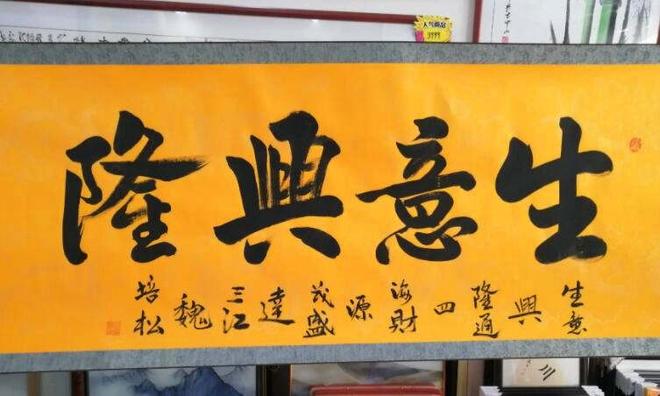 生意興隆
生意
興
隆通
四
海財
源
茂盛
達
三江
魏
培松
人气商品
3999